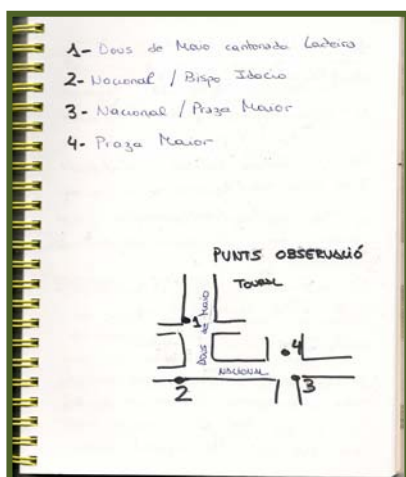 1- Dous de Maio cantonada Ladeira
2- Nacional / Bispo Idacio
3- Nacional / Praza Maior
4- Praza Maior
PUNTS OBSERVACIÓ
TOURAL
1
Dous de Maio
4
NACIONAL
2
3